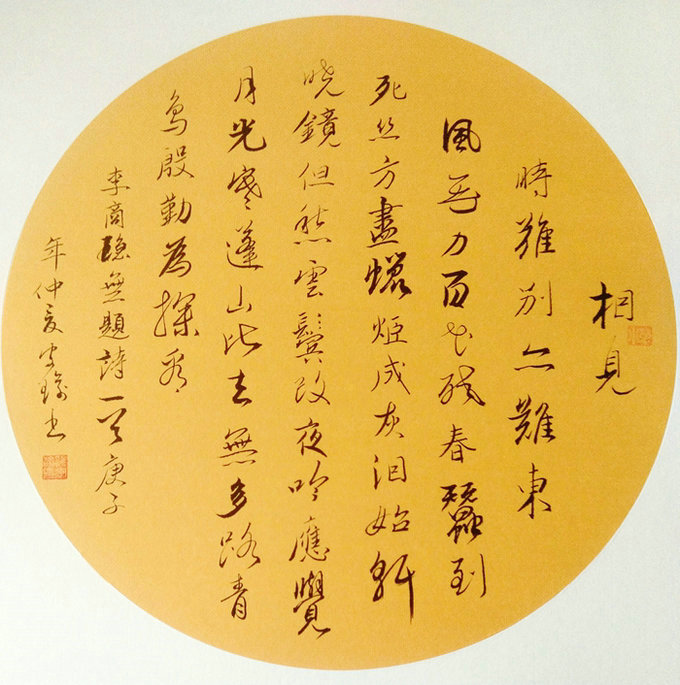 相見
時難别亦難東
風无力百花残春蠶到
死丝方盡蠟炬成灰泪始乾
曉鏡但愁雲鬢改夜吟應覺
月光寒蓬山此去無多路青
鳥殷勤為探看
李商隱無題詩一首庚子
年仲夏书